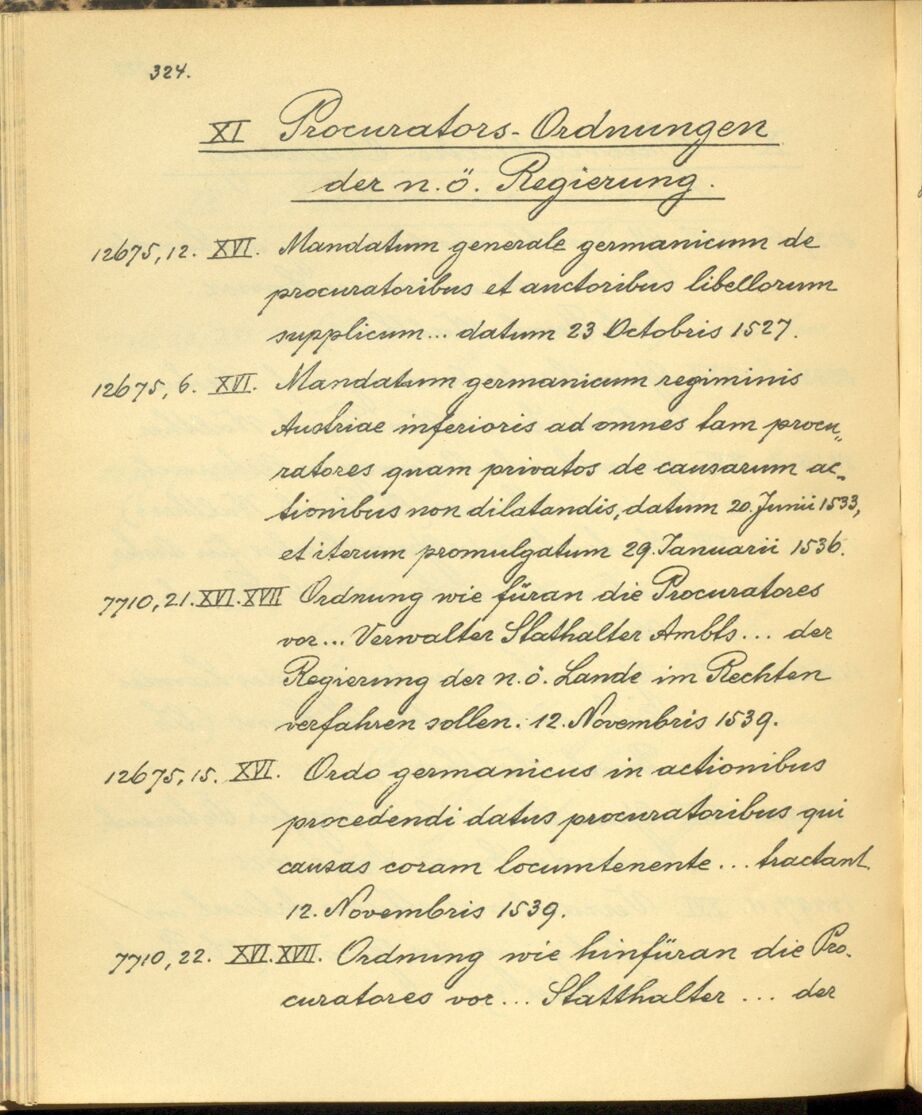 324.
XI Procurators-Ordnungen
der n.ö. Regierung.
12675, 12. XVI. Mandatum generale germanicum de
procuratoribus et auctoribus libellorum
supplicum... datum 23 Octobris 1527.
12675, 6. XVI. Mandatum germanicum regiminis
Austriae inferioris ad omnes tam procu„
ratores quam privatos de causarum ac„
tionibus non dilatandis, datum 20. Junii 1533,
et iterum promulgatum 29. Januarii 1536.
7710, 21. XVI. XVII Ordnung wie füran die Procuratores
vor... Verwalter Stathalter Ambts... der
Regierung der n.ö. Lande im Rechten
verfahren sollen. 12. Novembris 1539.
12675, 15. XVI. Ordo germanicus in actionibus
procedendi datus procuratoribus qui
causas coram locumtenente... tractant.
12. Novembris 1539.
7710, 22. XVI. XVII. Ordnung wie hinfüran die Pro.
curatores vor... Statthalter... der